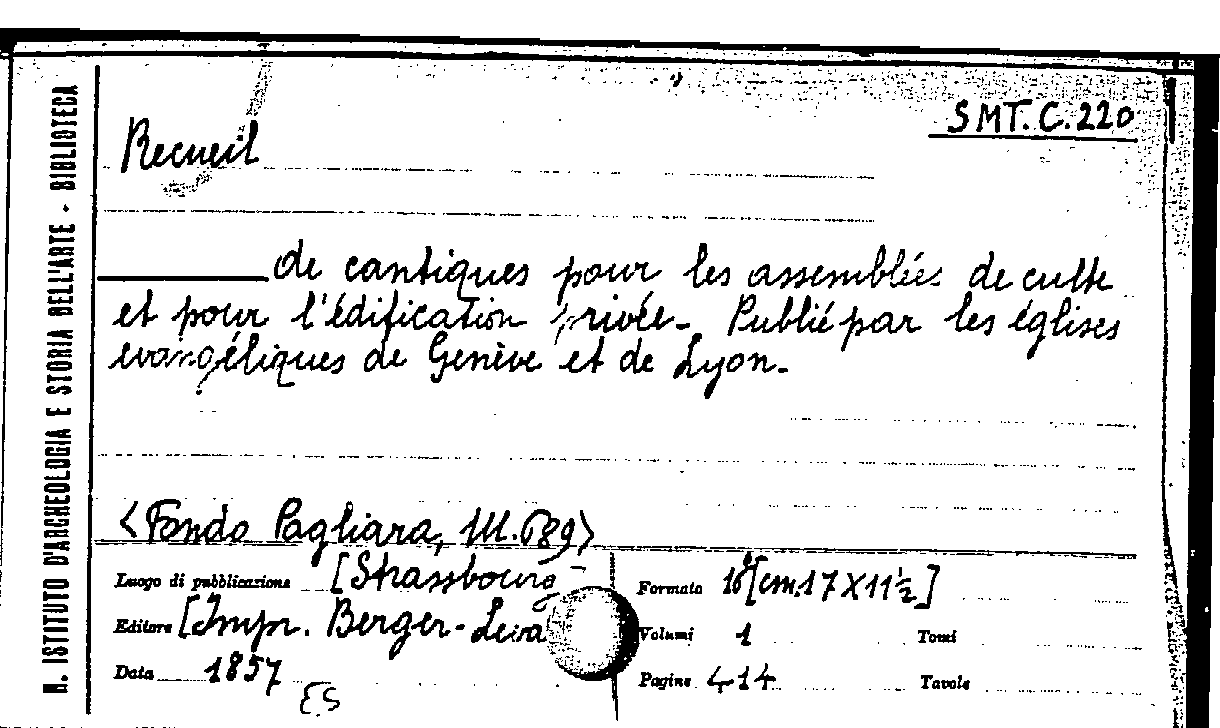 R. ISTITUTO D'ARCHEOLOGIA E STORIA DELL'ARTE - BIBLIOTECA
SMT. C. 220
Recueil
de cantiques pour les assemblées de culte
et pour l'édification privée. Publié par les églises
evangéliques de Genève et de Lyon.
<Fondo Pagliara, M.689>
Luogo di pubblicazione [Strassbourg
Formato 16°[cm.17 X 11½]
Editore [Impr. Berger-Leva
Volumi 1 Tomi
Data 1857
Pagine 414 Tavole
E.S